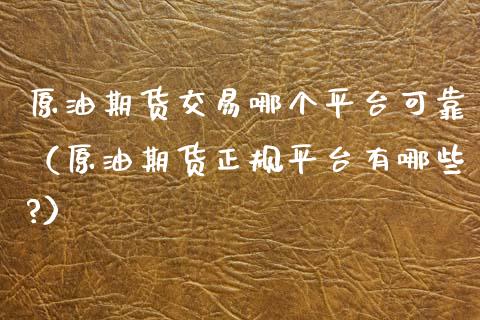 原油期货交易哪个平台可靠
（原油期货正规平台有哪些
?）